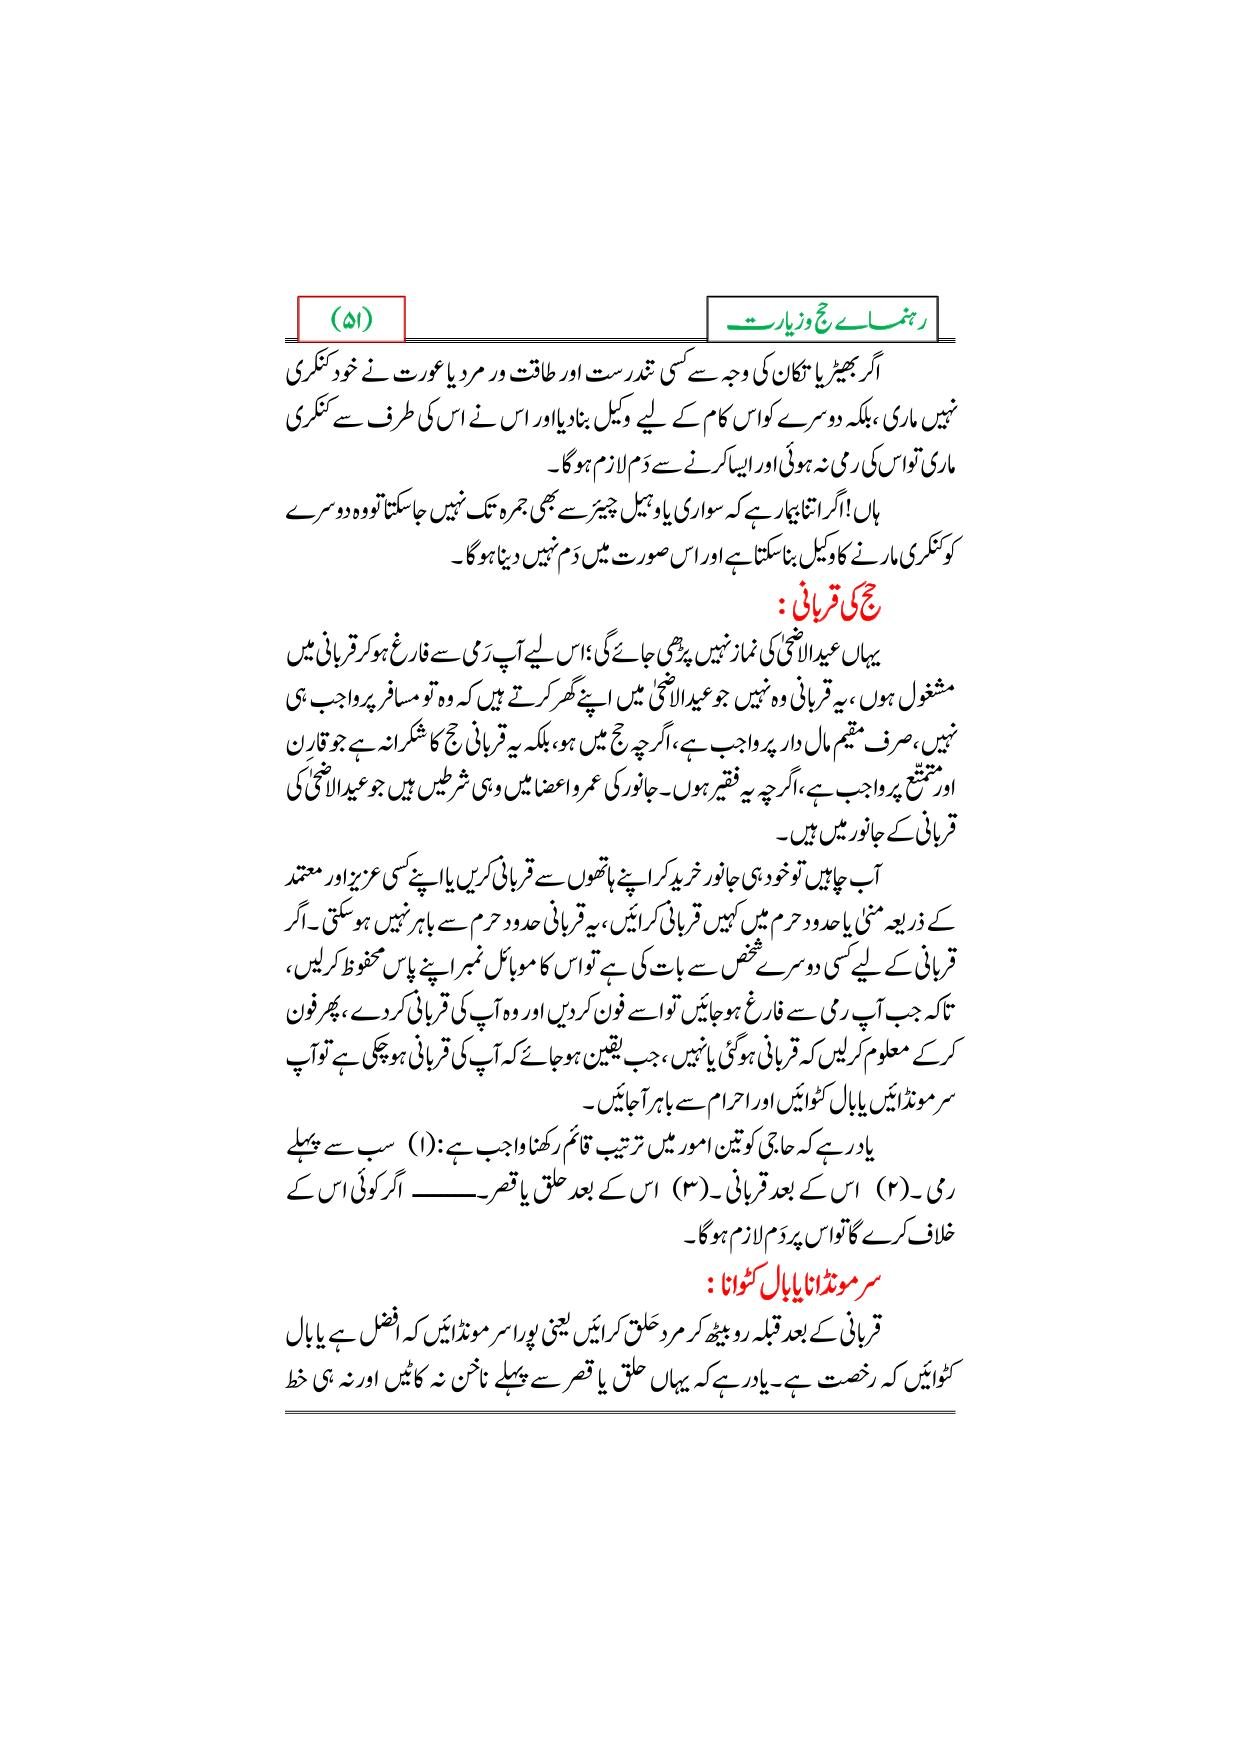 رہنماے حج وزیارت
(۵۱)
اگر بھیڑ یا تکان کی وجہ سے کسی تندرست اور طاقت ور مرد یا عورت نے خود کنکری
نہیں ماری ،بلکہ دوسرے کو اس کام کے لیے وکیل بنا دیا اور اس نے اس کی طرف سے کنکری
ماری تو اس کی رمی نہ ہوئی اور ایسا کرنے سے دَم لازم ہوگا۔
ہاں!اگر اتنا بیمار ہے کہ سواری یا وہیل چیئر سے بھی جمرہ تک نہیں جاسکتا تو وہ دوسرے
کو کنکری مارنے کا وکیل بنا سکتا ہے اور اس صورت میں دَم نہیں دینا ہوگا۔
حج کی قربانی :
یہاں عیدالاضحیٰ کی نماز نہیں پڑھی جائے گی؛اس لیے آپ رَمی سے فارغ ہوکر قربانی میں
مشغول ہوں ،یہ قربانی وہ نہیں جو عیدالاضحیٰ میں اپنے گھر کرتے ہیں کہ وہ تو مسافر پر واجب ہی
نہیں،صرف مقیم مال دار پر واجب ہے،اگرچہ حج میں ہو،بلکہ یہ قربانی حج کا شکرانہ ہے جو قارِن
اور متمتّع پر واجب ہے،اگرچہ یہ فقیر ہوں۔جانور کی عمر و اعضا میں وہی شرطیں ہیں جو عیدالاضحیٰ کی
قربانی کے جانور میں ہیں۔
آپ چاہیں تو خود ہی جانور خرید کر اپنے ہاتھوں سے قربانی کریں یا اپنے کسی عزیز اور معتمد
کے ذریعہ منیٰ یا حدود حرم میں کہیں قربانی کرائیں،یہ قربانی حدود حرم سے باہر نہیں ہوسکتی۔اگر
قربانی کے لیے کسی دوسرے شخص سے بات کی ہے تو اس کا موبائل نمبر اپنے پاس محفوظ کرلیں،
تاکہ جب آپ رمی سے فارغ ہوجائیں تو اسے فون کردیں اور وہ آپ کی قربانی کردے ،پھر فون
کرکے معلوم کرلیں کہ قربانی ہوگئی یا نہیں ،جب یقین ہوجائے کہ آپ کی قربانی ہوچکی ہے تو آپ
سر مونڈائیں یا بال کٹوائیں اور احرام سے باہر آجائیں۔
یاد رہے کہ حاجی کو تین امور میں ترتیب قائم رکھنا واجب ہے:(۱) سب سے پہلے
رمی ۔(۲) اس کے بعد قربانی ۔(۳) اس کے بعد حلق یا قصر۔ـــــــــــ اگر کوئی اس کے
خلاف کرے گا تو اس پر دَم لازم ہوگا۔
سر مونڈانا یا بال کٹوانا :
قربانی کے بعد قبلہ رو بیٹھ کر مرد حَلق کرائیں یعنی پورا سر مونڈائیں کہ افضل ہے یا بال
کٹوائیں کہ رخصت ہے۔یادرہے کہ یہاں حلق یا قصر سے پہلے ناخن نہ کاٹیں اور نہ ہی خط